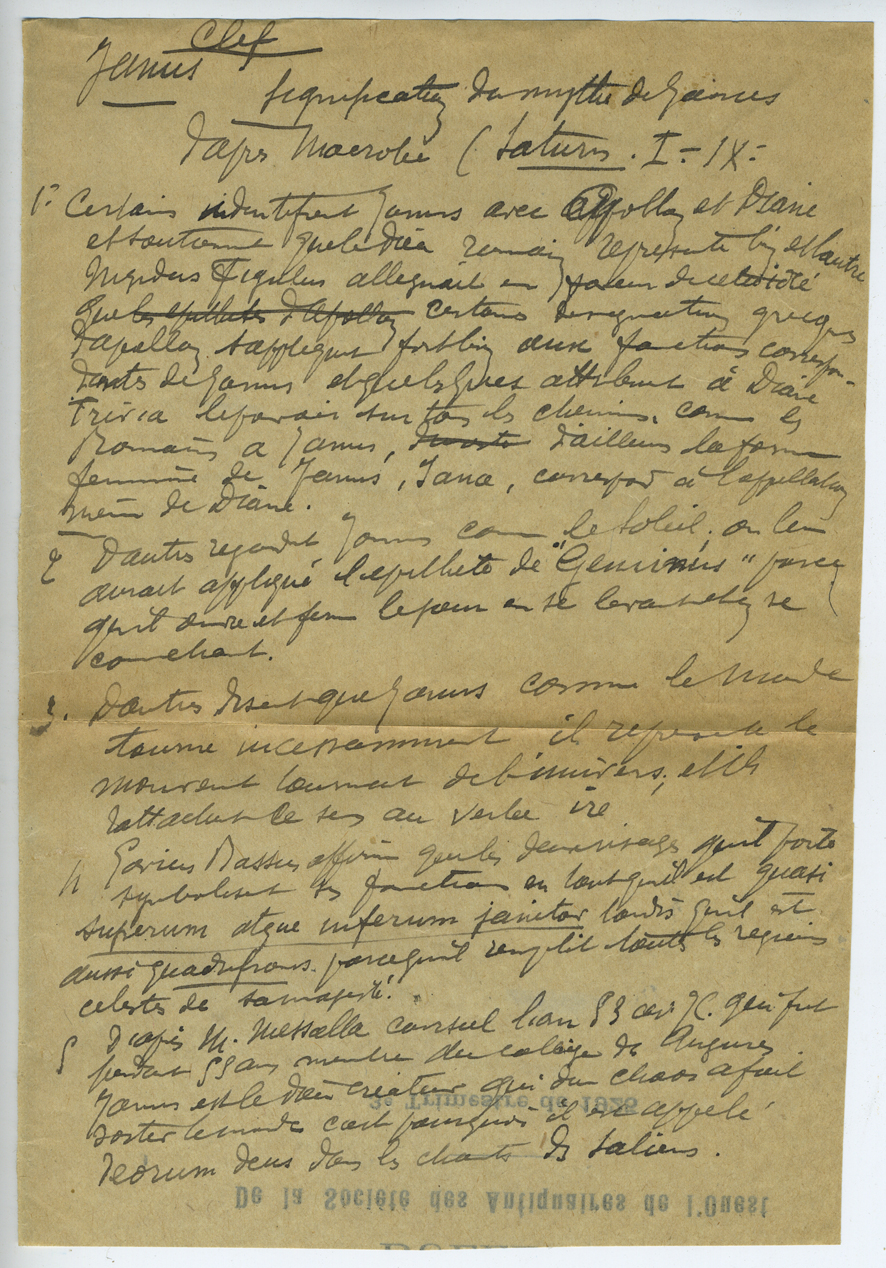 Clef
Janus
Signification du mythe de Janus
d'après Macrobe ( Saturn. I - IX -
1° Certains identifient Janus avec Apollon et Diane
et soutiennent que le dieu romain représente l'un et l'autre
Nigidus Figulus alléguait en faveur de cette idée
que les epithètes d'Apollon certaines designations grecques
d'apollon s'appliquent fort bien aux fonctions correspon-
dantes de Janus et quelques attribuent à Diane
Trivia le pouvoir sur tous les chemins, comme les
Romains a Janus, d'ailleurs la forme
feminine de Janus, Jana, correspond à l'appellation
même de Diane.
2 D'autres regardent Janus comme le Soleil; on lui
aurait appliqué l'epithète de "Geminus" parce
qu'il ouvre et ferme le jour en se levant et en se
couchant.
3. D'autres disent que Janus comme le Monde
tourne incessamment il represente le
mouvement tournant de l'univers; et ils
rattachent ce sens au verbe ire
4 Gavius Bassus affirme que les deux visages qu'il porte
symbolisent ses fonctions en tant qu'il est quasi
superum atque inferum janitor tandis qu'il est
aussi quadrifrons parce qu'il remplit toutes les regions
celestes de sa majesté.
5 D'après M. Messalla consul l'an 53 av. JC. qui fut
pendant 55 ans membre du college des Augures
Janus est le dieu créateur qui du chaos a fait
sortir le monde c'est pourquoi il est appelé
deorum deus dans les chants des Saliens.
2e Trimestre de 1925
De la Société des Antiquaires de l'Ouest